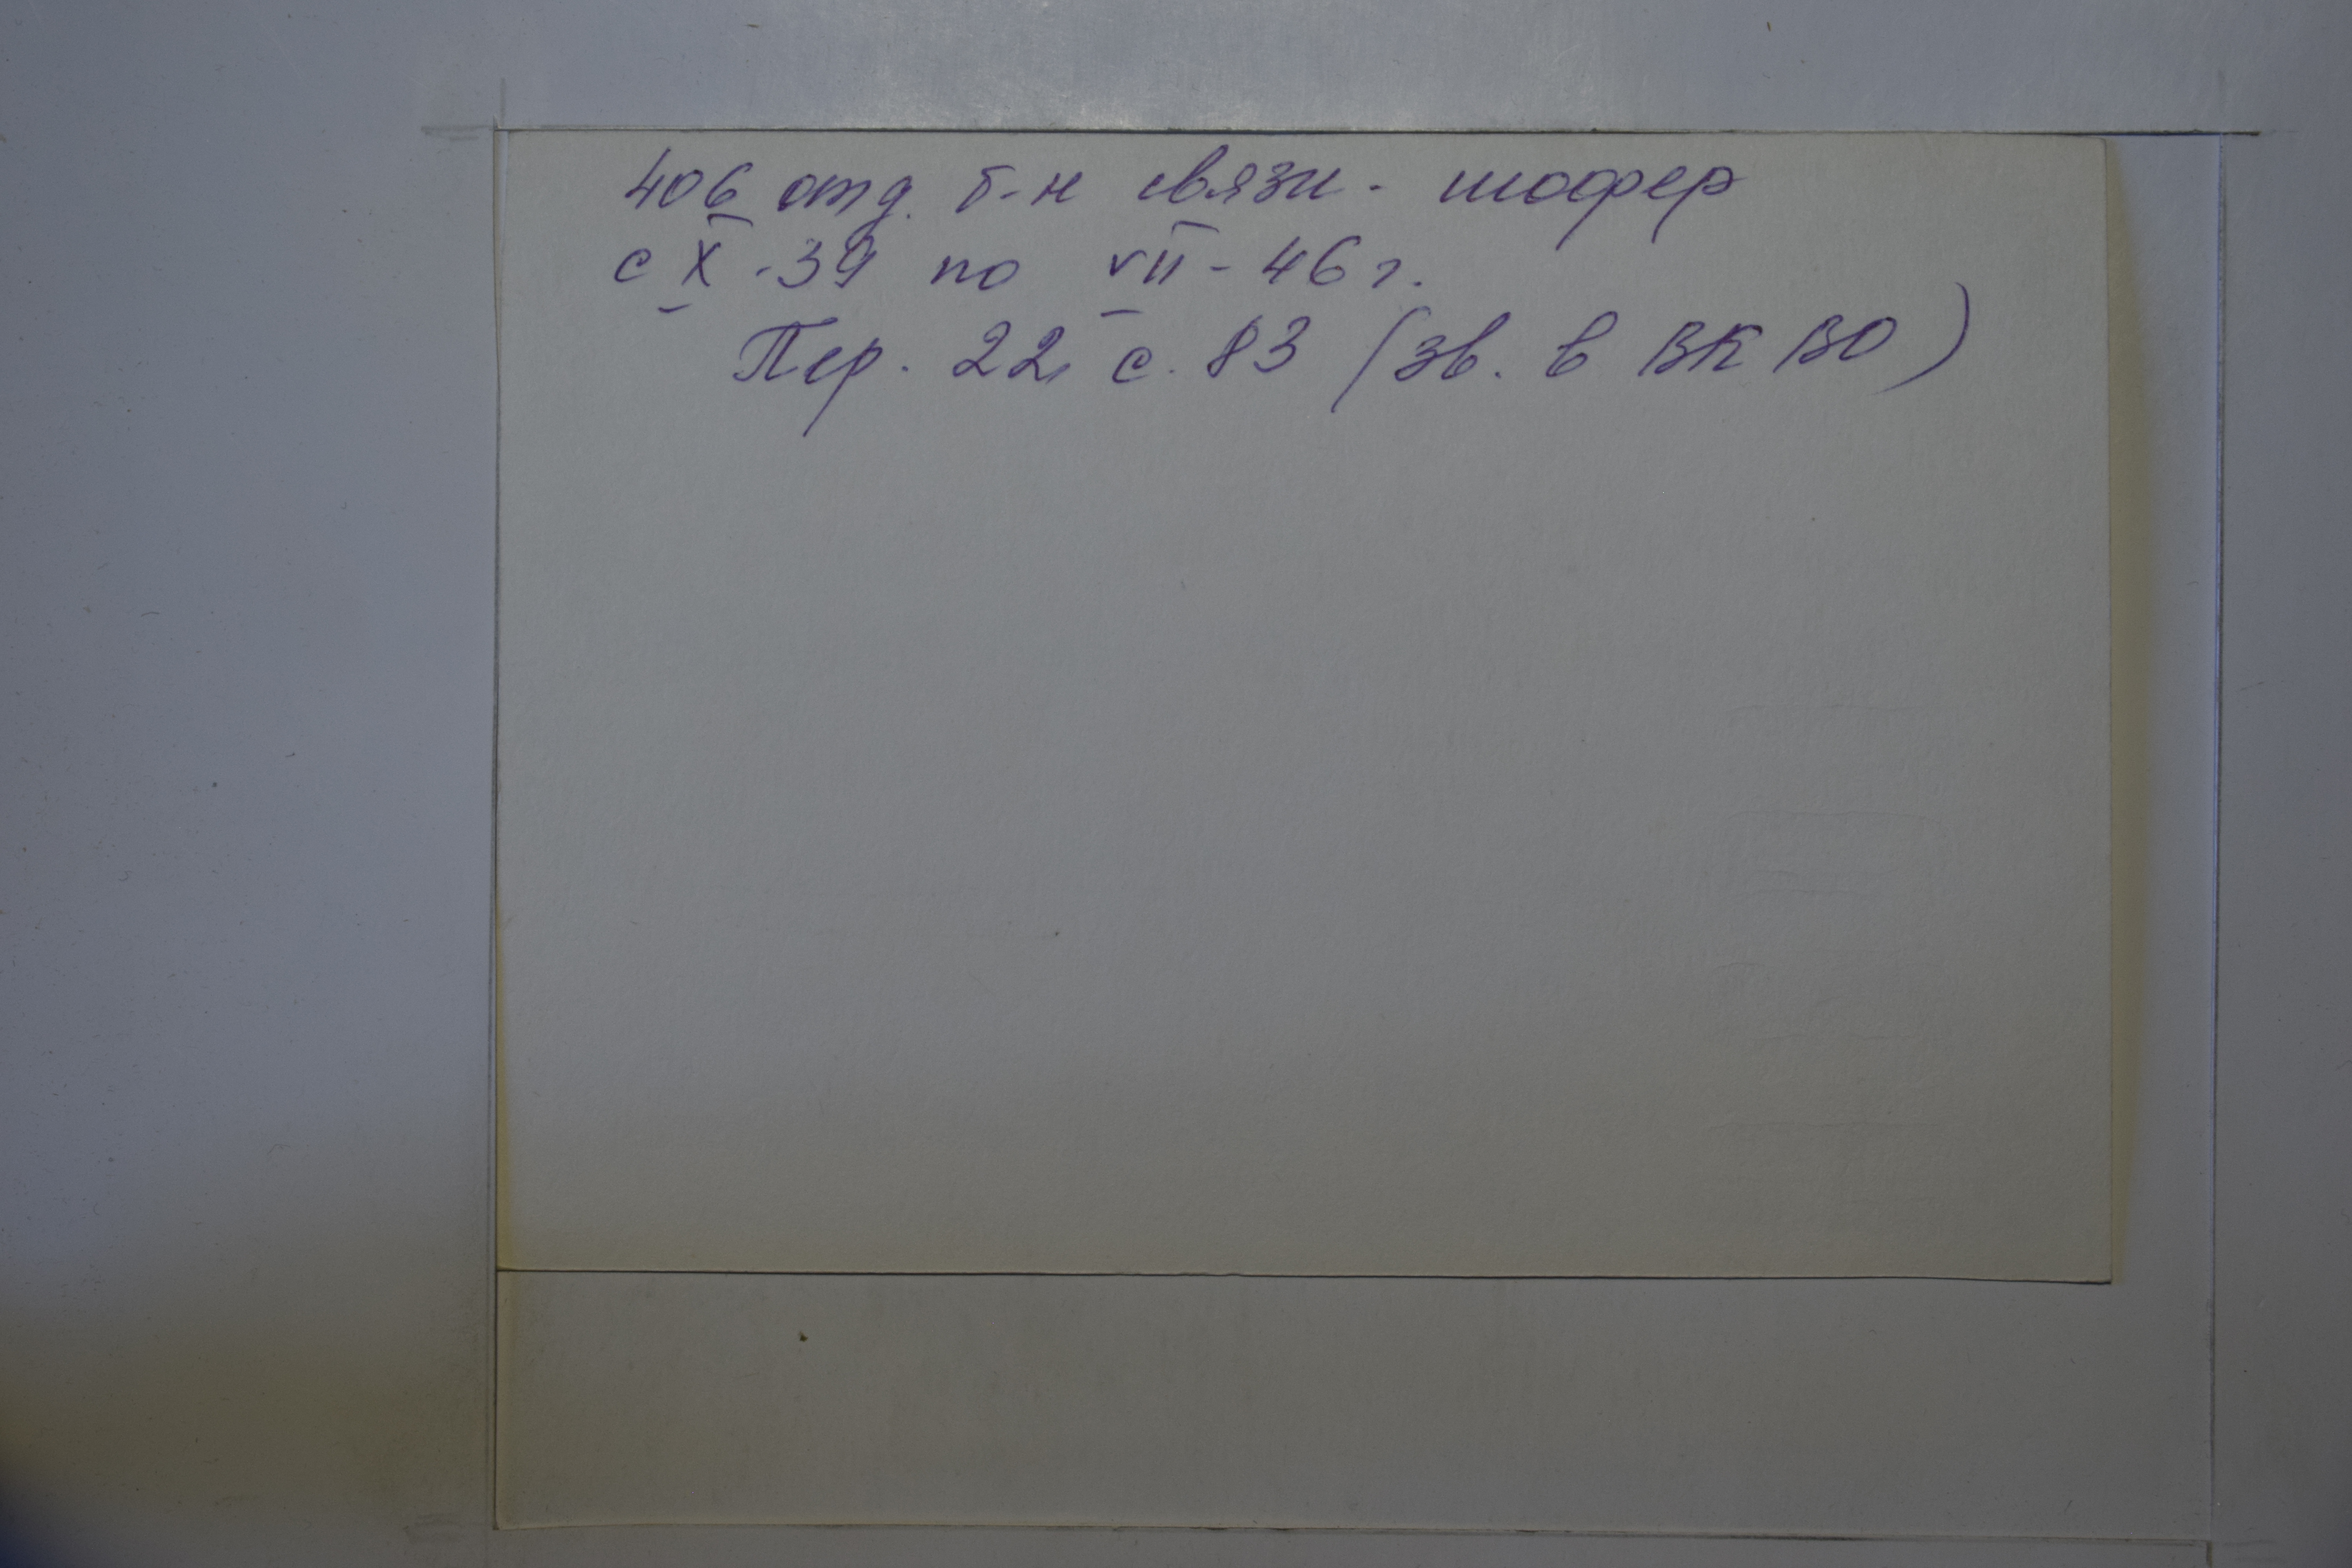 406 отд. б-н связи - шофер
с X - 39 по VII - 46 г.
Пер. 22, с. 83 (зв. в ВК ВО)